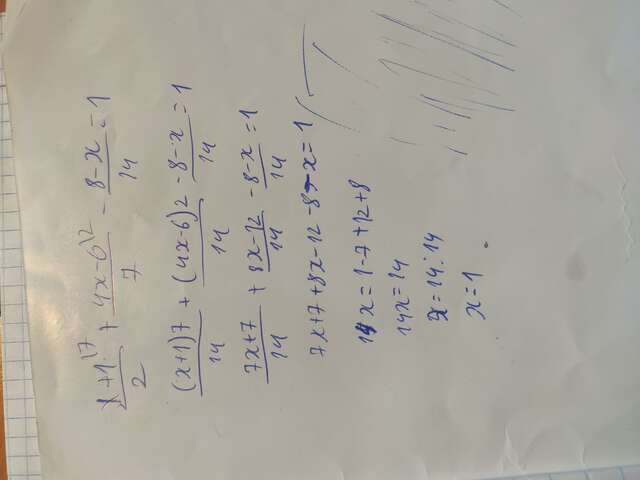 x+1^7/2 + 4x-6^2/7 - 8-x/14 = 1
(x+1)7/14 + (4x-6)2/14 - 8-x/14 = 1
7x+7/14 + 8x-12/14 - 8-x/14 = 1
7x+7+8x-12-8-x=1
14x=1-7+12+8
14x=14
x=14:14
x=1